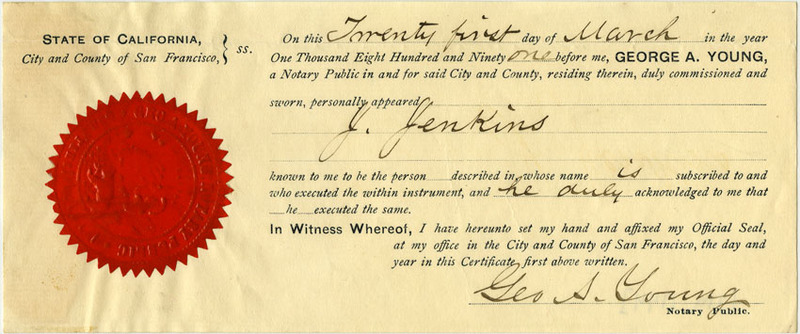 STATE OF CALIFORNIA,
City and County of San Francisco, } ss.
On this Twenty first day of March in the year
One Thousand Eight Hundred and Ninety one before me, GEORGE A. YOUNG,
a Notary Public in and for said City and County, residing therein, duly commissioned and
sworn, personally appeared
J. Jenkins
known to me to be the person described in whose name is subscribed to and
who executed the within instrument, and he duly acknowledged to me that
he executed the same.
In Witness Whereof, I have hereunto set my hand and affixed my Official Seal,
at my office in the City and County of San Francisco, the day and
year in this Certificate first above written.
Geo A. Young
Notary Public.